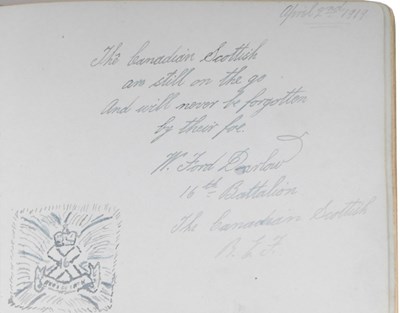 April 27th 1918
The Canadian Scottish
are still on the go
And will never be forgotten
by their foe.
W. Ford Darlow
16th Battalion
The Canadian Scottish
B.E.F